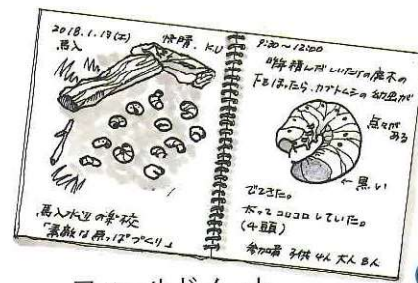 2018.1.13(土) 快晴. KU
馬入
馬入水辺の楽校
「素敵な原っぱづくり」
9:30〜12:00
昨年積んだいた の庭木の
下をほったら、カブトムシの幼虫が
点々が
ある
←黒い
でてきた。
太ってコロコロしていた。
(4頭)
参加者 子供4人 大人8人
フィールドノート